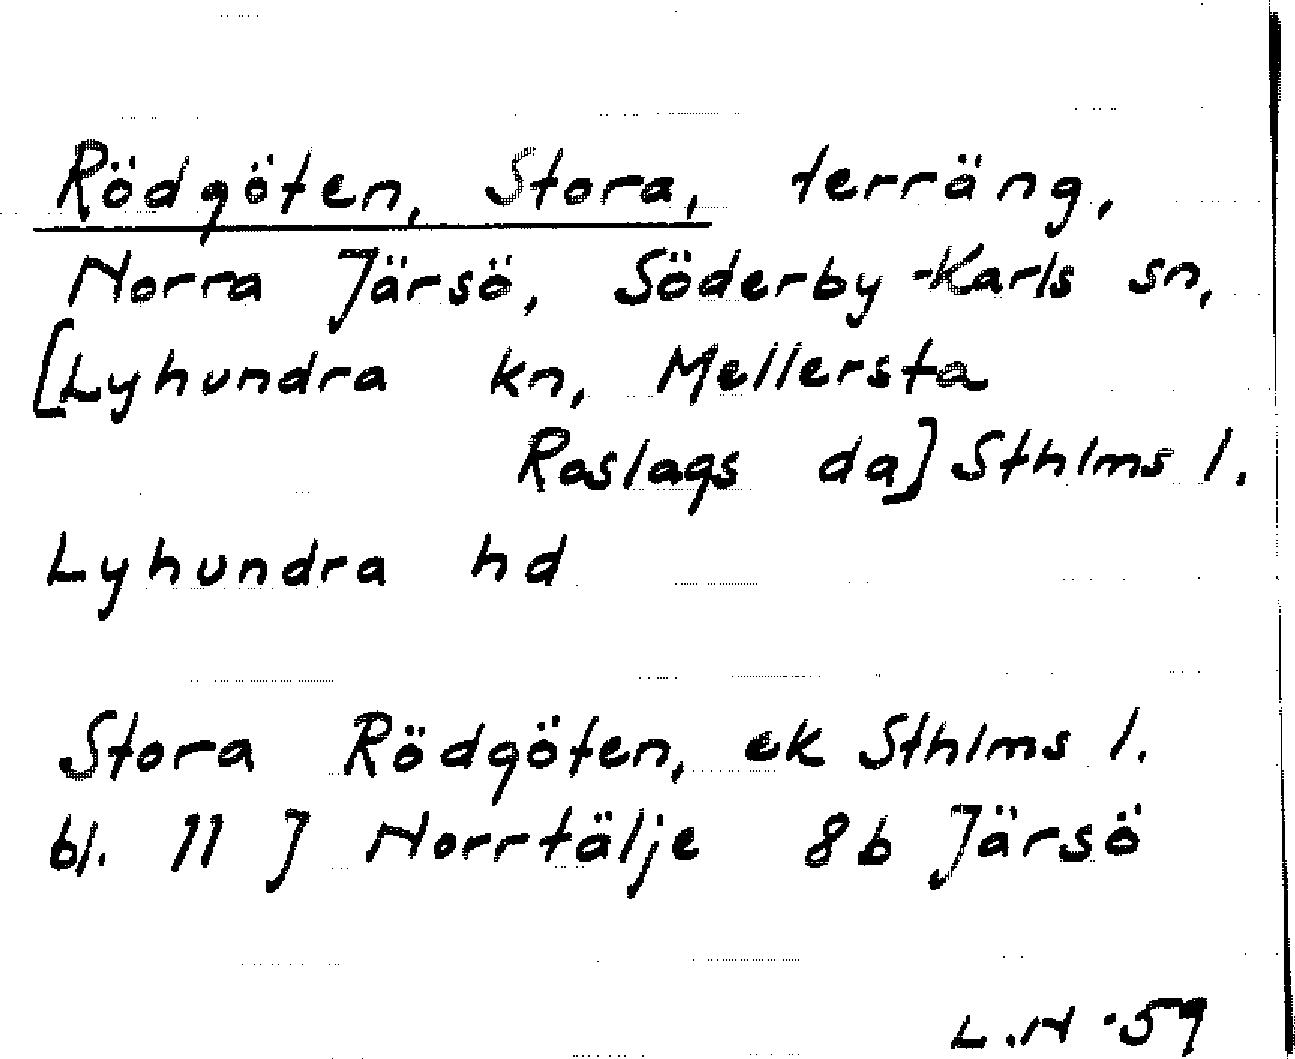 Rödgöten, Stora, terräng,
Norra Järsö, Söderby-Karls sn,
[Lyhundra kn, Mellersta
Roslags da] Sthlms l.
Lyhundra hd
Stora Rödgöten, ek Sthlms l.
bl. 11 J Norrtälje 8b Järsö
L.N -59